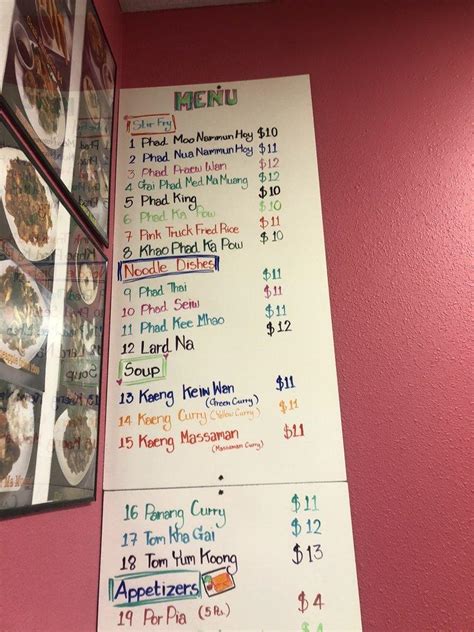 MENU
Stir Fry
1 Phad Moo Nammun Hoy $10
2 Phad Nua Nammun Hoy $11
3 Phad Praew Wan $12
4 Gai Phad Med Ma Muang $12
5 Phad King $10
6 Phad Ka Pow $10
7 Pink Truck Fried Rice $11
8 Khao Phad Ka Pow $10
Noodle Dishes
9 Phad Thai $11
10 Phad Seiw $11
11 Phad Kee Mhao $11
12 Lard Na $12
Soup
13 Kaeng Keiw Wan $11
(Green Curry)
14 Kaeng Curry (Yellow Curry) $11
15 Kaeng Massaman $11
(Massaman Curry)
16 Panang Curry $11
17 Tom Kha Gai $12
18 Tom Yum Koong $13
Appetizers
19 Por Pia (5 Ps.) $4